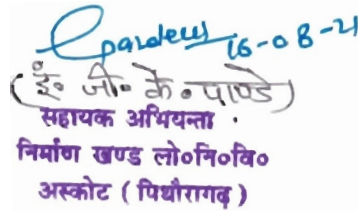 16-08-21
(ई॰ जी॰ के॰ पाण्डे)
सहायक अभियन्ता
निर्माण खण्ड लो०नि०वि०
अस्कोट ( पिथौरागढ़ )